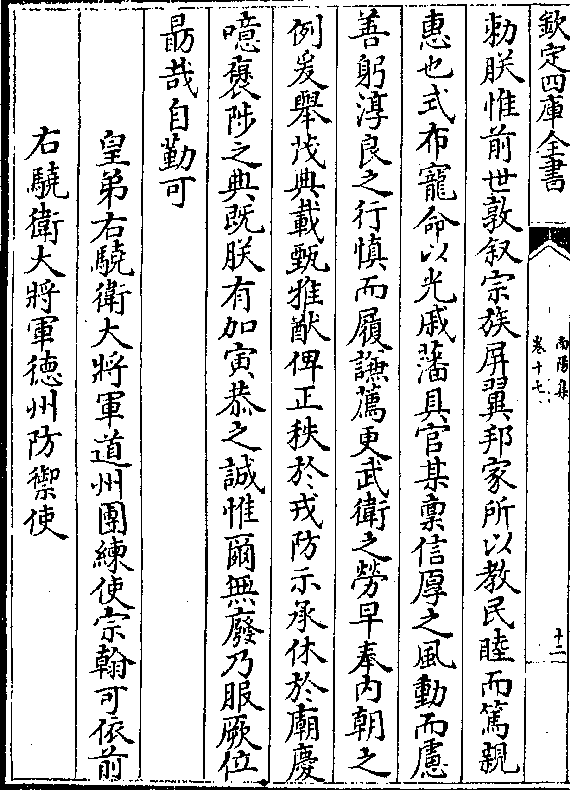 欽定四庫全書
南陽集
卷十七
十二
勅朕惟前世敦叙宗族屏翼邦家所以教民睦而篤親
惠也式布寵命以光戚藩具官某稟信厚之風動而慮
善躬淳良之行慎而履謙薦更武衛之勞早奉内朝之
例爰舉茂典載甄雅猷俾正秩於戎防示承休於廟慶
噫褒陟之典既朕有加寅恭之誠惟爾無廢乃服厥位
勗哉自勤可
皇弟右驍衛大將軍道州團練使宗翰可依前
右驍衛大將軍德州防禦使